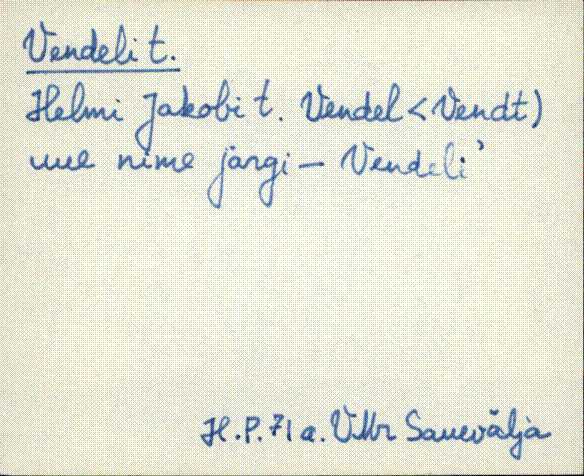 Vendeli t.
Helmi Jakobi t. Vendel < Vendt)
uue nime järgi – Vendeli'
H.P. 71 a. VMr Sauevälja